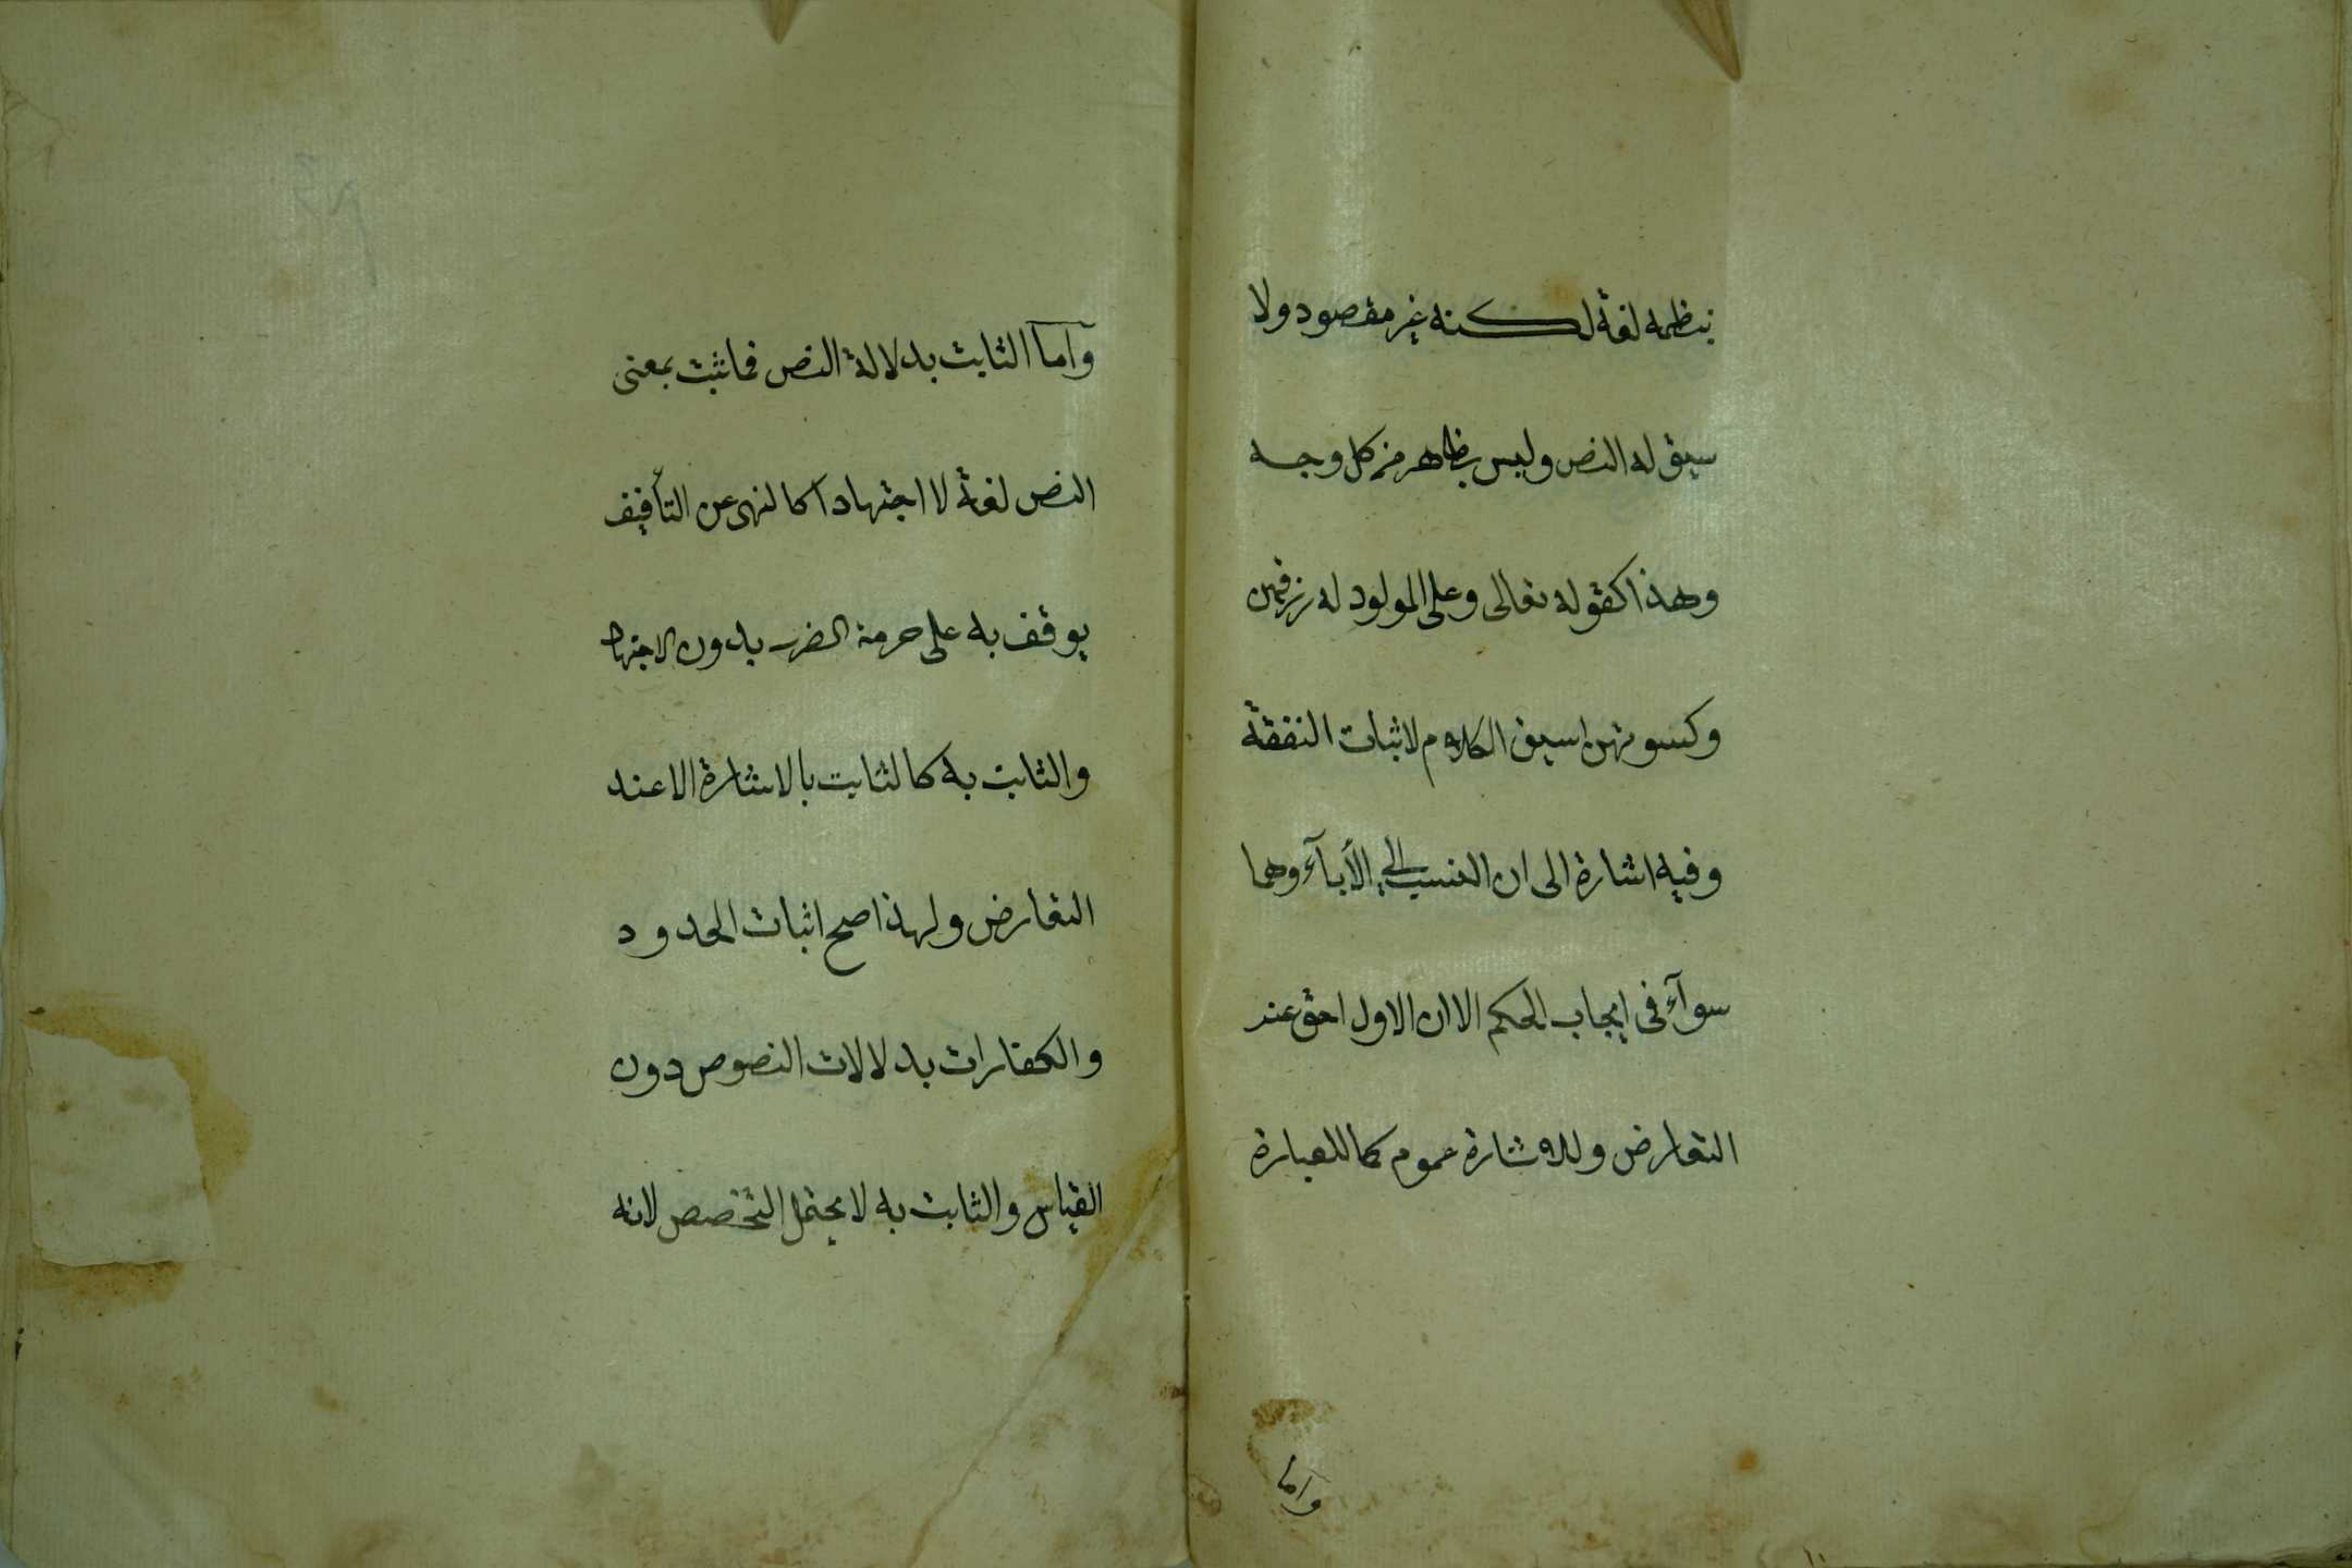 بنظمه لغة لكنه غير مقصود ولا
سيق له النص وليس بظاهر من كل وجه
وهذا كقوله تعالى وعلى المولود له رزقهن
وكسوتهن سيق الكلام لاثبات النفقة
وفيه اشارة الى ان النسب الى الأبآء وهما
سوآء فى ايجاب الحكم الا ان الاول احق عند
التعارض وللاشارة عموم كما للعبارة
واما
وآما الثابت بدلالة النص فما ثبت بمعنى
النص لغة لا اجتهادا كالنهى عن التأفيف
يوقف به على حرمة الضرب بدون الاجتهاد
والثابت به كالثابت بالاشارة الا عند
التعارض ولهذا صح اثبات الحدود
والكفارات بدلالات النصوص دون
القياس والثابت به لا يحتمل التخصص لانه